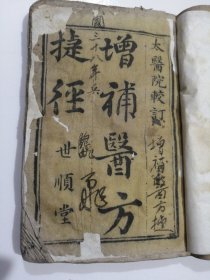 太醫院較訂
增補醫方
捷徑
世順堂
國三十八年
增補醫方捷